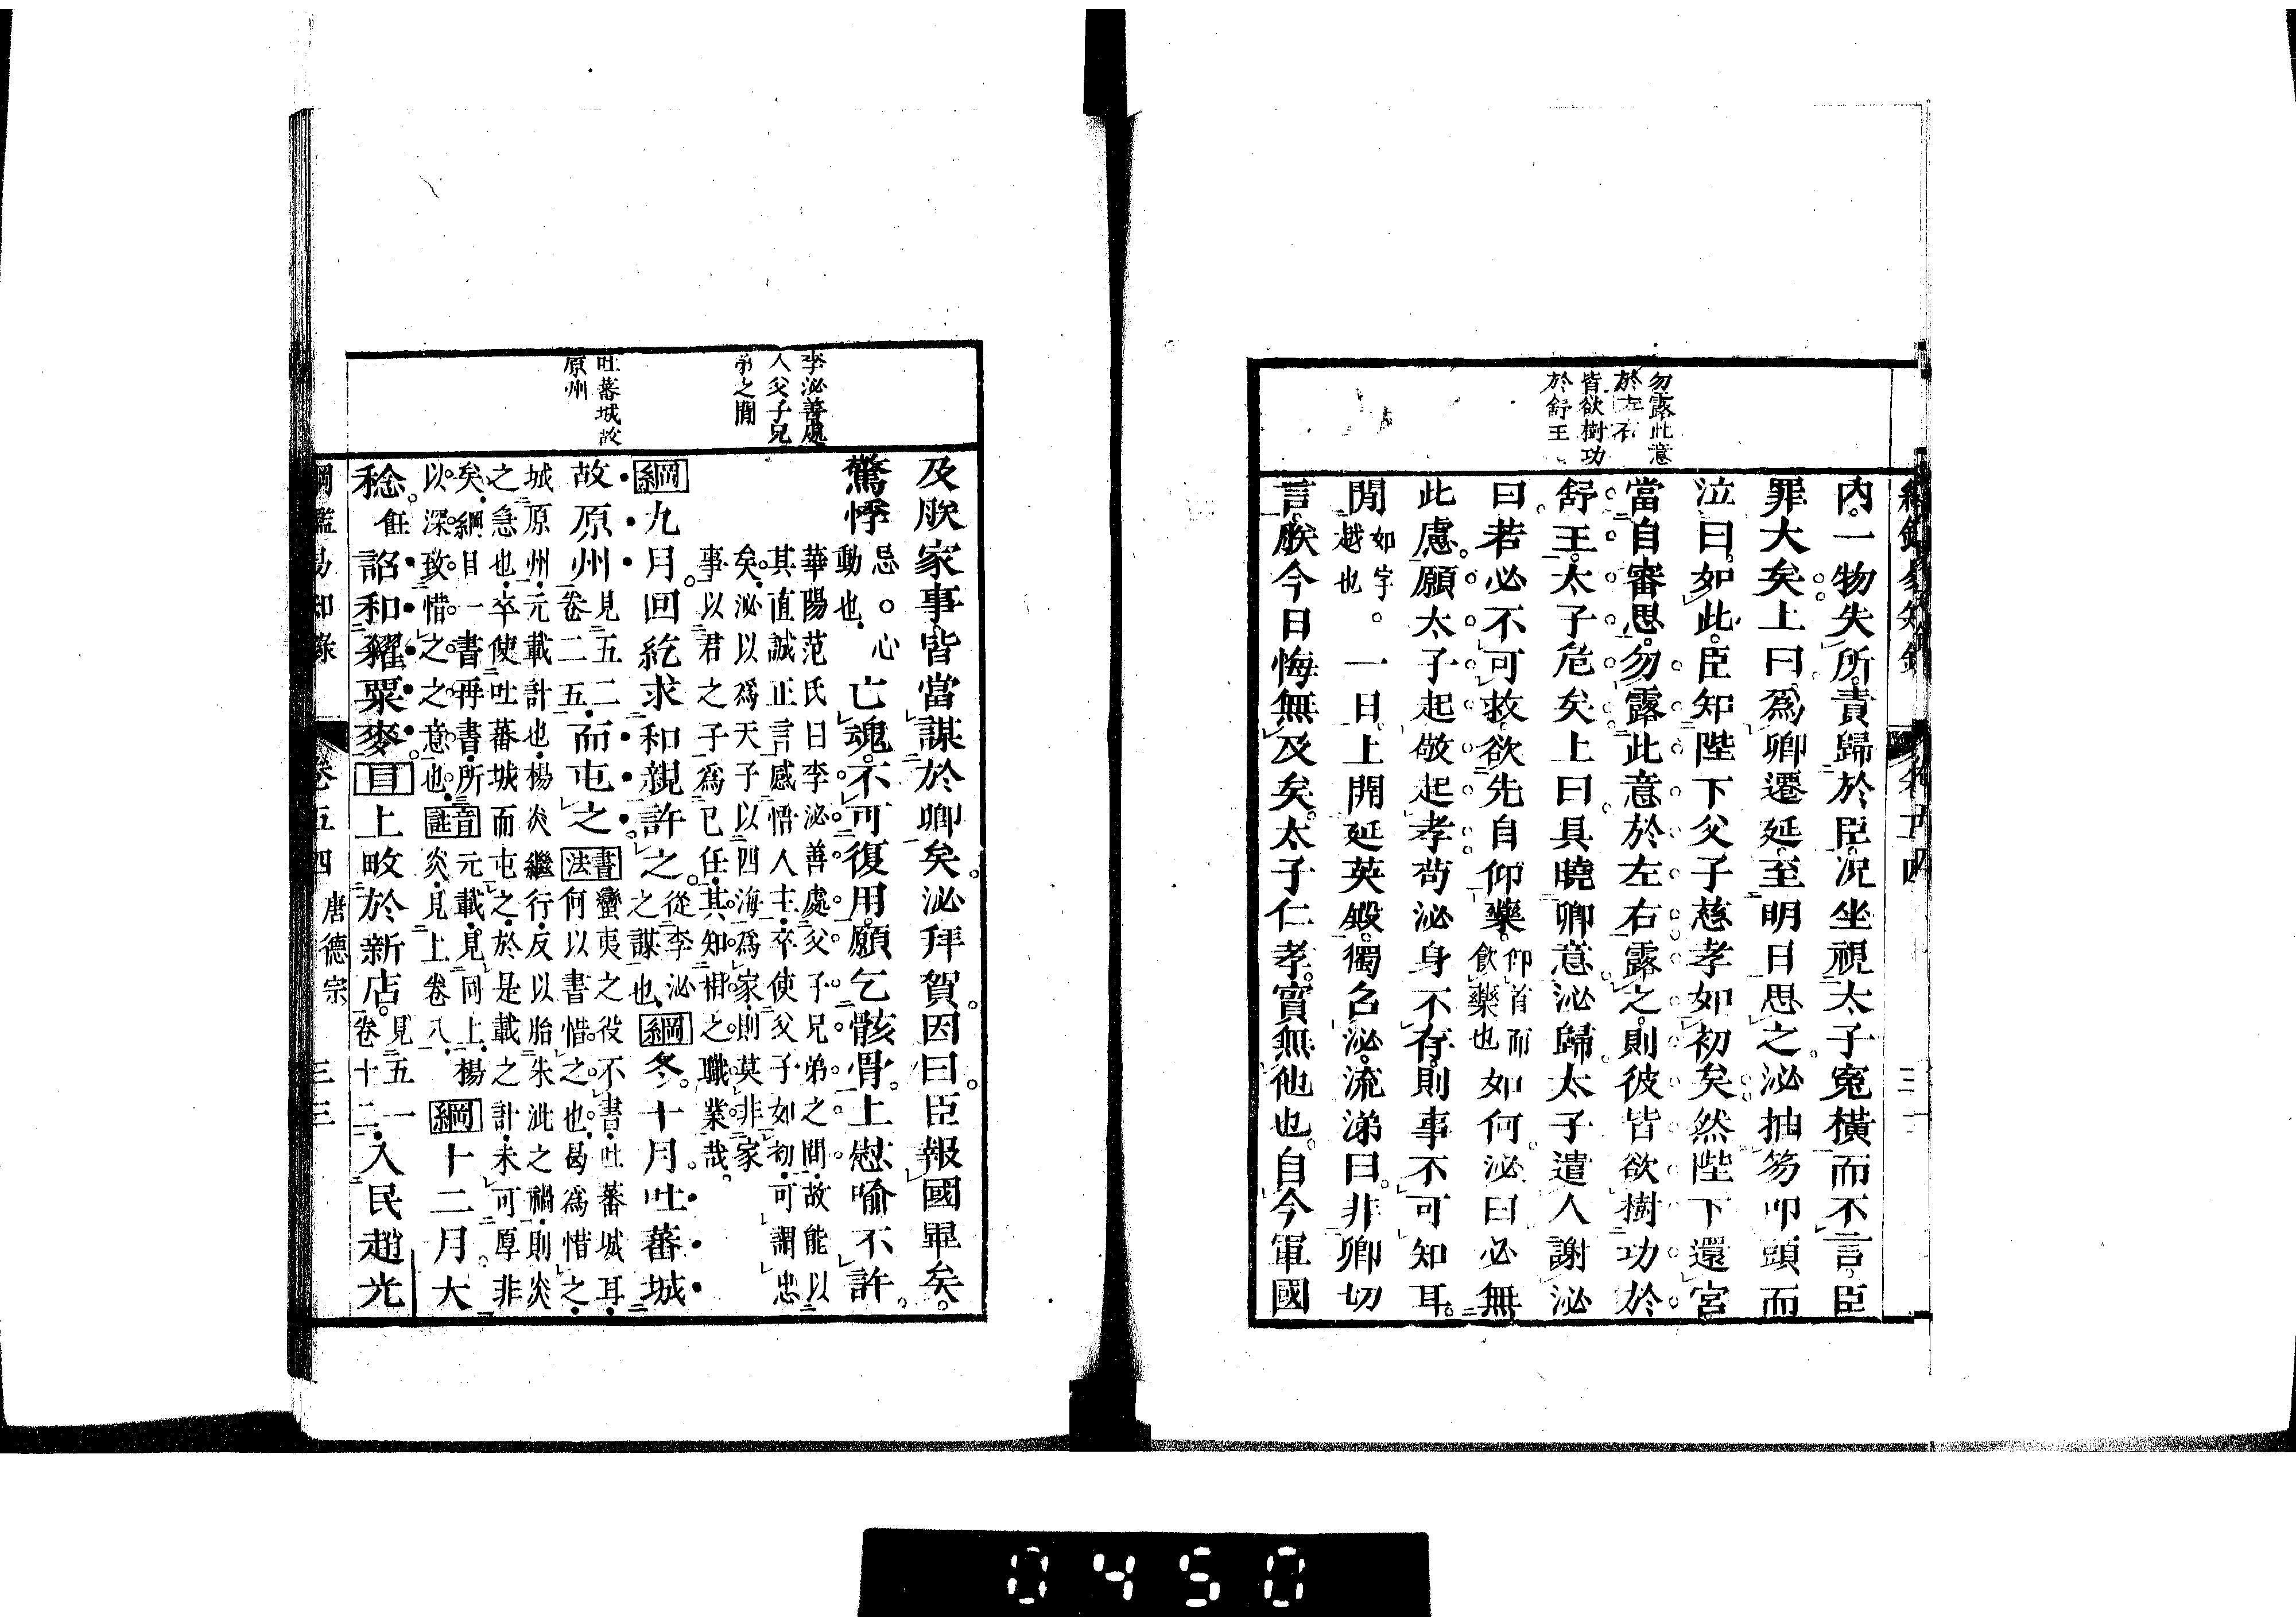 勿露此意
於左右
皆欲樹功
於舒王
內一物失所責歸於臣況坐視太子冤橫而不言臣
罪大矣上曰爲卿遷延至明日思之泌抽笏叩頭而
泣曰如此臣知陛下父子慈孝如初矣然陛下還宮
當自審思勿露此意於左右露之則彼皆欲樹功於
舒王太子危矣上曰具曉卿意泌歸太子遣人謝泌
曰若必不可救欲先自仰藥仰首而飲藥也如何泌曰必無
此慮願太子起敬起孝苟泌身不存則事不可知耳
閒如字。越也一日上開延英殿獨召泌流涕曰非卿切
言朕今日悔無及矣太子仁孝實無他也自今軍國
李泌善處
人父子兄
弟之閒
吐蕃城故
原州
及朕家事皆當謀於卿矣泌拜賀因曰臣報國畢矣
驚悸忌。心動也亡魂不可復用願乞骸骨上慰喻不許
華陽范氏曰李泌善處父子兄弟之間故能以
其直誠正言感悟人主卒使父子如初可謂忠
矣泌以爲天子以四海爲家則莫非家
事以君之子爲已任其知相之職業哉
綱九月回紇求和親許之從李泌之謀也綱冬十月吐蕃城
故原州見五二卷二五而屯之書法蠻夷之役不書吐蕃城耳何以書惜之也曷爲惜之
城原州元載計也楊炎繼行反以胎朱泚之禍則炎
之急也卒使吐蕃城而屯之於是載之計未可厚非
矣綱目一書再書所
以深致惜之之意也音註元載見同上楊炎見上卷八綱十二月大
稔飪詔和糴粟麥目上畋於新店見五一卷十二入民趙光
綱鑑易知錄 卷五四 唐德宗 三三